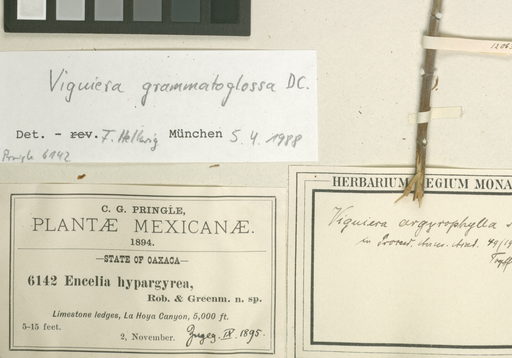 Viguiera grammatoglossa DC.
Det. - rev. F. Hellwig München 5. 4. 1988
Pringle 6142
C. G. PRINGLE,
PLANTÆ MEXICANÆ.
1894.
—STATE OF OAXACA—
6142 Encelia hypargyrea,
Rob. & Greenm. n. sp.
Limestone ledges, La Hoya Canyon, 5,000 ft.
5-15 feet.
2, November. Zugeg. IX. 1895.
HERBARIUM REGIUM MONA
Viguiera argyrophylla
in Proceed.